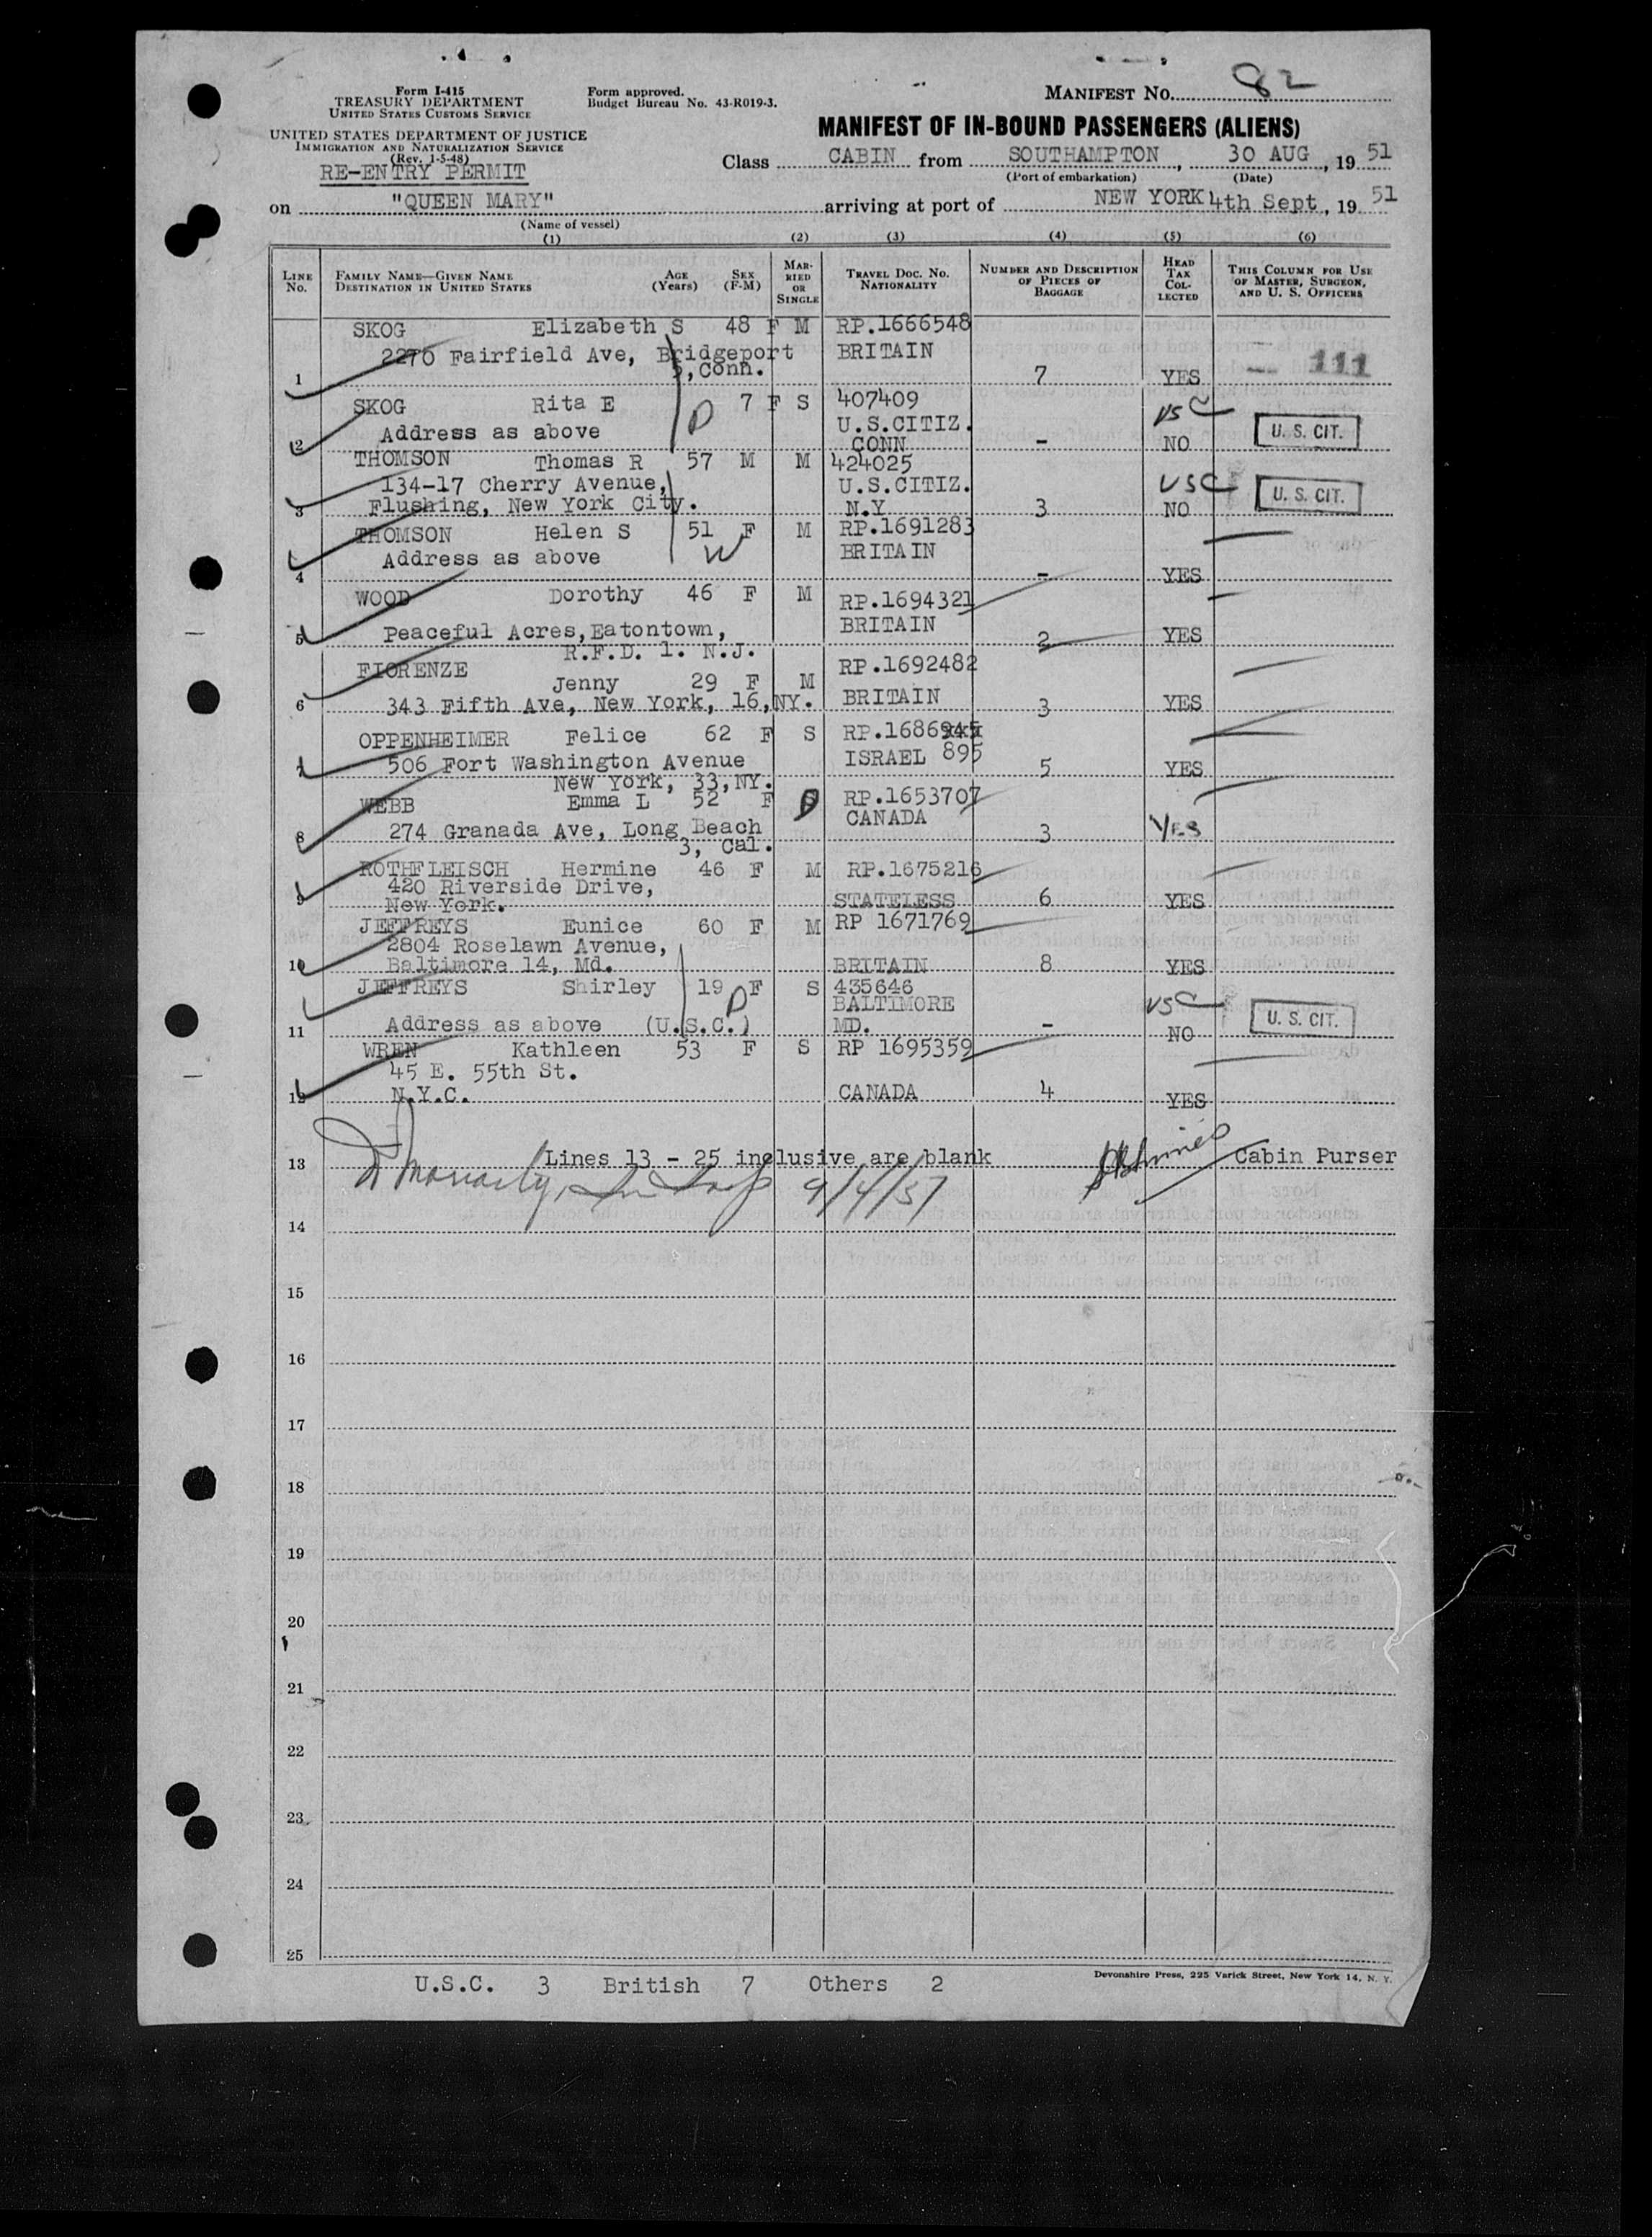 Form I-415
TREASURY DEPARTMENT
UNITED STATES CUSTOMS SERVICE
UNITED STATES DEPARTMENT OF JUSTICE
IMMIGRATION AND NATURALIZATION SERVICE
(Rev. 1-5-48)
RE-ENTRY PERMIT
Form approved.
Budget Bureau No. 43-R019-3.
MANIFEST NO. 82
MANIFEST OF IN-BOUND PASSENGERS (ALIENS)
Class CABIN from SOUTHAMPTON, 30 AUG, 19 51
(Port of embarkation) (Date)
on "QUEEN MARY" arriving at port of NEW YORK 4th Sept, 19 51
(Name of vessel)
(1) (2) (3) (4) (5) (6)
LINE NO. FAMILY NAME—GIVEN NAME DESTINATION IN UNITED STATES AGE (Years) SEX (F-M) MARRIED OR SINGLE TRAVEL DOC. NO. NATIONALITY NUMBER AND DESCRIPTION OF PIECES OF BAGGAGE HEAD TAX COLLECTED THIS COLUMN FOR USE OF MASTER, SURGEON, AND U. S. OFFICERS
SKOG Elizabeth S 48 F M RP.1666548
2270 Fairfield Ave, Bridgeport BRITAIN
1 5, Conn. 7 YES 111
SKOG Rita E 7 F S 407409 USC
Address as above D U.S.CITIZ. U. S. CIT.
2 CONN - NO
THOMSON Thomas R 57 M M 424025
134-17 Cherry Avenue, U.S.CITIZ. USC U. S. CIT.
3 Flushing, New York City. N.Y 3 NO
THOMSON Helen S 51 F M RP.1691283
Address as above W BRITAIN
4 - YES
WOOD Dorothy 46 F M RP.1694321
BRITAIN
5 Peaceful Acres, Eatontown, 2 YES
R.F.D. 1. N.J.
FIORENZE RP.1692482
Jenny 29 F M
6 343 Fifth Ave, New York, 16, NY. BRITAIN 3 YES
OPPENHEIMER Felice 62 F S RP.1686945
7 506 Fort Washington Avenue ISRAEL 895 5 YES
New York, 33, NY.
WEBB Emma L 52 F D RP.1653707
CANADA
8 274 Granada Ave, Long Beach 3 YES
3, Cal.
ROTHFLEISCH Hermine 46 F M RP.1675216
420 Riverside Drive,
9 New York. STATELESS 6 YES
JEFFREYS Eunice 60 F M RP 1671769
2804 Roselawn Avenue,
10 Baltimore 14, Md. BRITAIN 8 YES
JEFFREYS Shirley 19 F S 435646
D BALTIMORE USC
11 Address as above (U.S.C.) MD. - NO U. S. CIT.
WREN Kathleen 53 F S RP 1695359
45 E. 55th St.
12 N.Y.C. CANADA 4 YES
13 Lines 13 - 25 inclusive are blank Cabin Purser
9/4/51
14
15
16
17
18
19
20
21
22
23
24
25
U.S.C. 3 British 7 Others 2
Devonshire Press, 225 Varick Street, New York 14, N. Y.